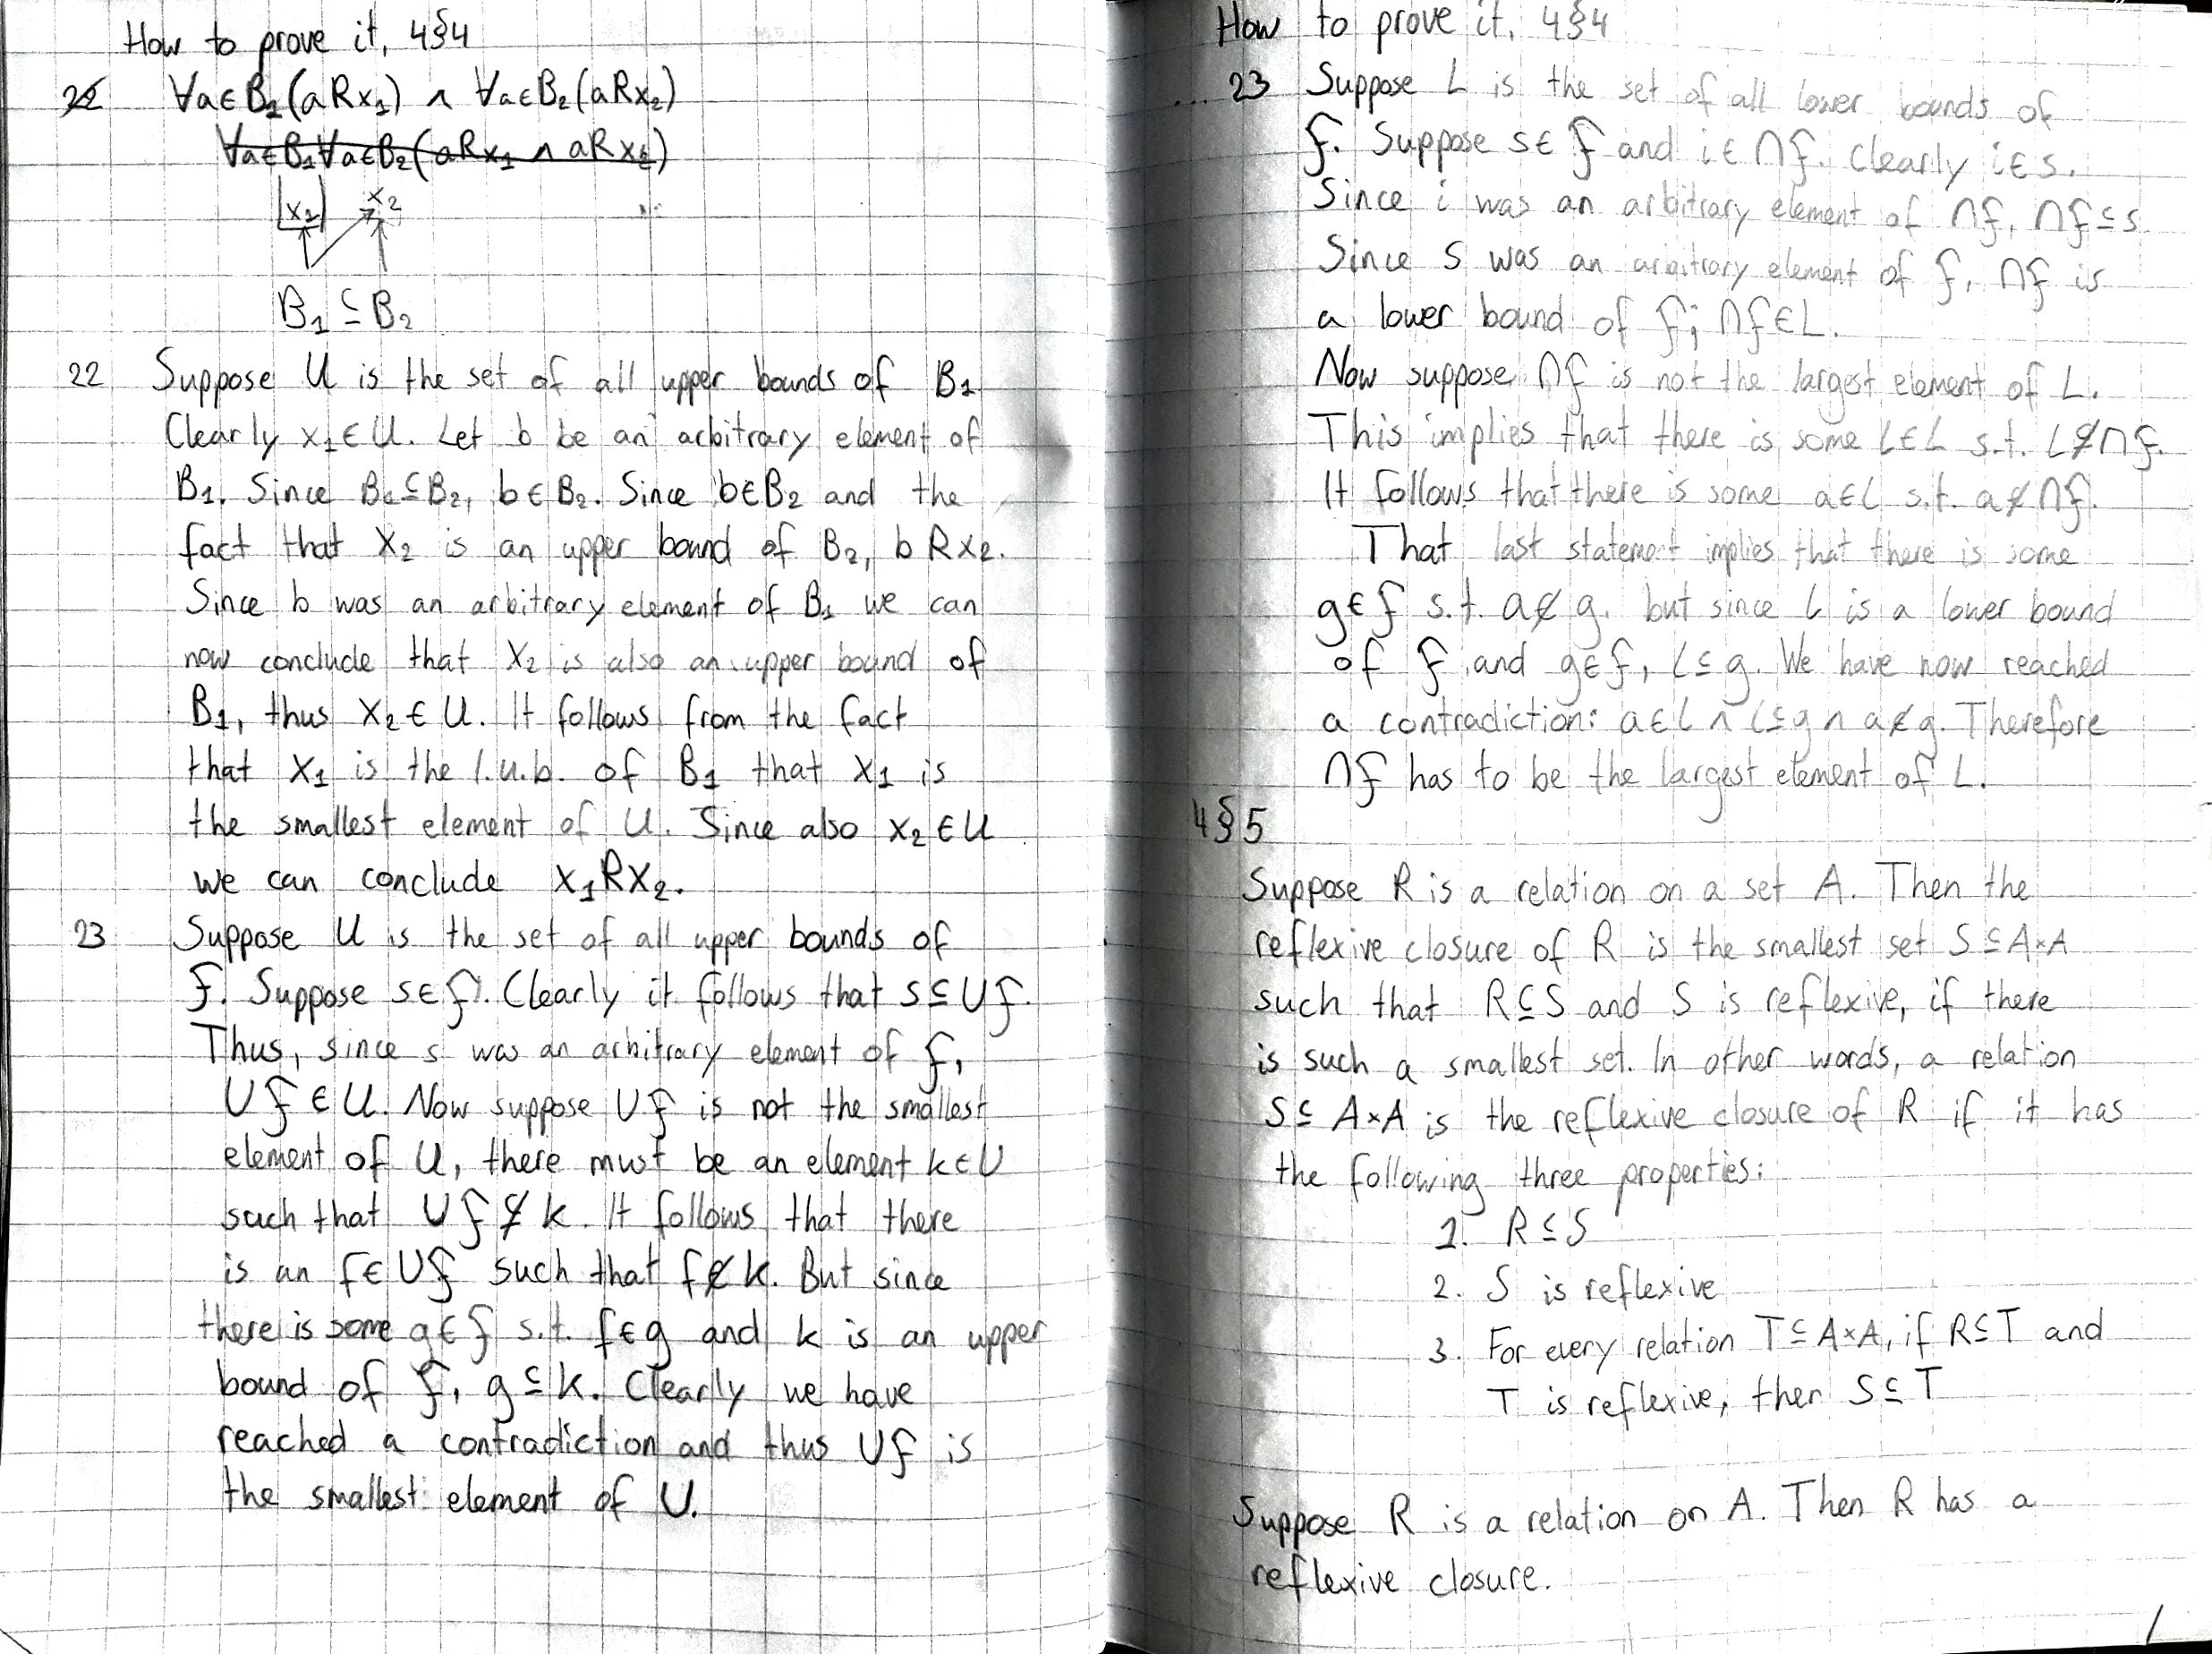 How to prove it, 4§4
22 ∀a∈B₁(aRx₁) ∧ ∀a∈B₂(aRx₂)
∀a∈B₁∀a∈B₂(aRx₁ ∧ aRx₂)
x₂ x₂
B₁ ⊆ B₂
22 Suppose U is the set of all upper bounds of B₁
Clearly x₁∈U. Let b be an arbitrary element of
B₁. Since B₁⊆B₂, b∈B₂. Since b∈B₂ and the
fact that x₂ is an upper bound of B₂, bRx₂.
Since b was an arbitrary element of B₁ we can
now conclude that x₂ is also an upper bound of
B₁, thus x₂∈U. It follows from the fact
that x₁ is the l.u.b. of B₁ that x₁ is
the smallest element of U. Since also x₂∈U
we can conclude x₁Rx₂.
23 Suppose U is the set of all upper bounds of
F. Suppose s∈F. Clearly it follows that s⊆∪F.
Thus, since s was an arbitrary element of F,
∪F∈U. Now suppose ∪F is not the smallest
element of U, there must be an element k∈U
such that ∪F⊈k. It follows that there
is an f∈∪F such that f∉k. But since
there is some g∈F s.t. f∈g and k is an upper
bound of F, g⊆k. Clearly we have
reached a contradiction and thus ∪F is
the smallest element of U.
How to prove it, 4§4
...23 Suppose L is the set of all lower bounds of
F. Suppose s∈F and i∈∩F. Clearly i∈s.
Since i was an arbitrary element of ∩F, ∩F⊆s.
Since s was an arbitrary element of F, ∩F is
a lower bound of F; ∩F∈L.
Now suppose ∩F is not the largest element of L.
This implies that there is some l∈L s.t. l⊈∩F.
It follows that there is some a∈l s.t. a∉∩F.
That last statement implies that there is some
g∈F s.t. a∉g, but since l is a lower bound
of F and g∈F, l⊆g. We have now reached
a contradiction: a∈l ∧ l⊆g ∧ a∉g. Therefore
∩F has to be the largest element of L.
4§5
Suppose R is a relation on a set A. Then the
reflexive closure of R is the smallest set S⊆A×A
such that R⊆S and S is reflexive, if there
is such a smallest set. In other words, a relation
S⊆A×A is the reflexive closure of R if it has
the following three properties:
1. R⊆S
2. S is reflexive
3. For every relation T⊆A×A, if R⊆T and
T is reflexive, then S⊆T
Suppose R is a relation on A. Then R has a
reflexive closure.